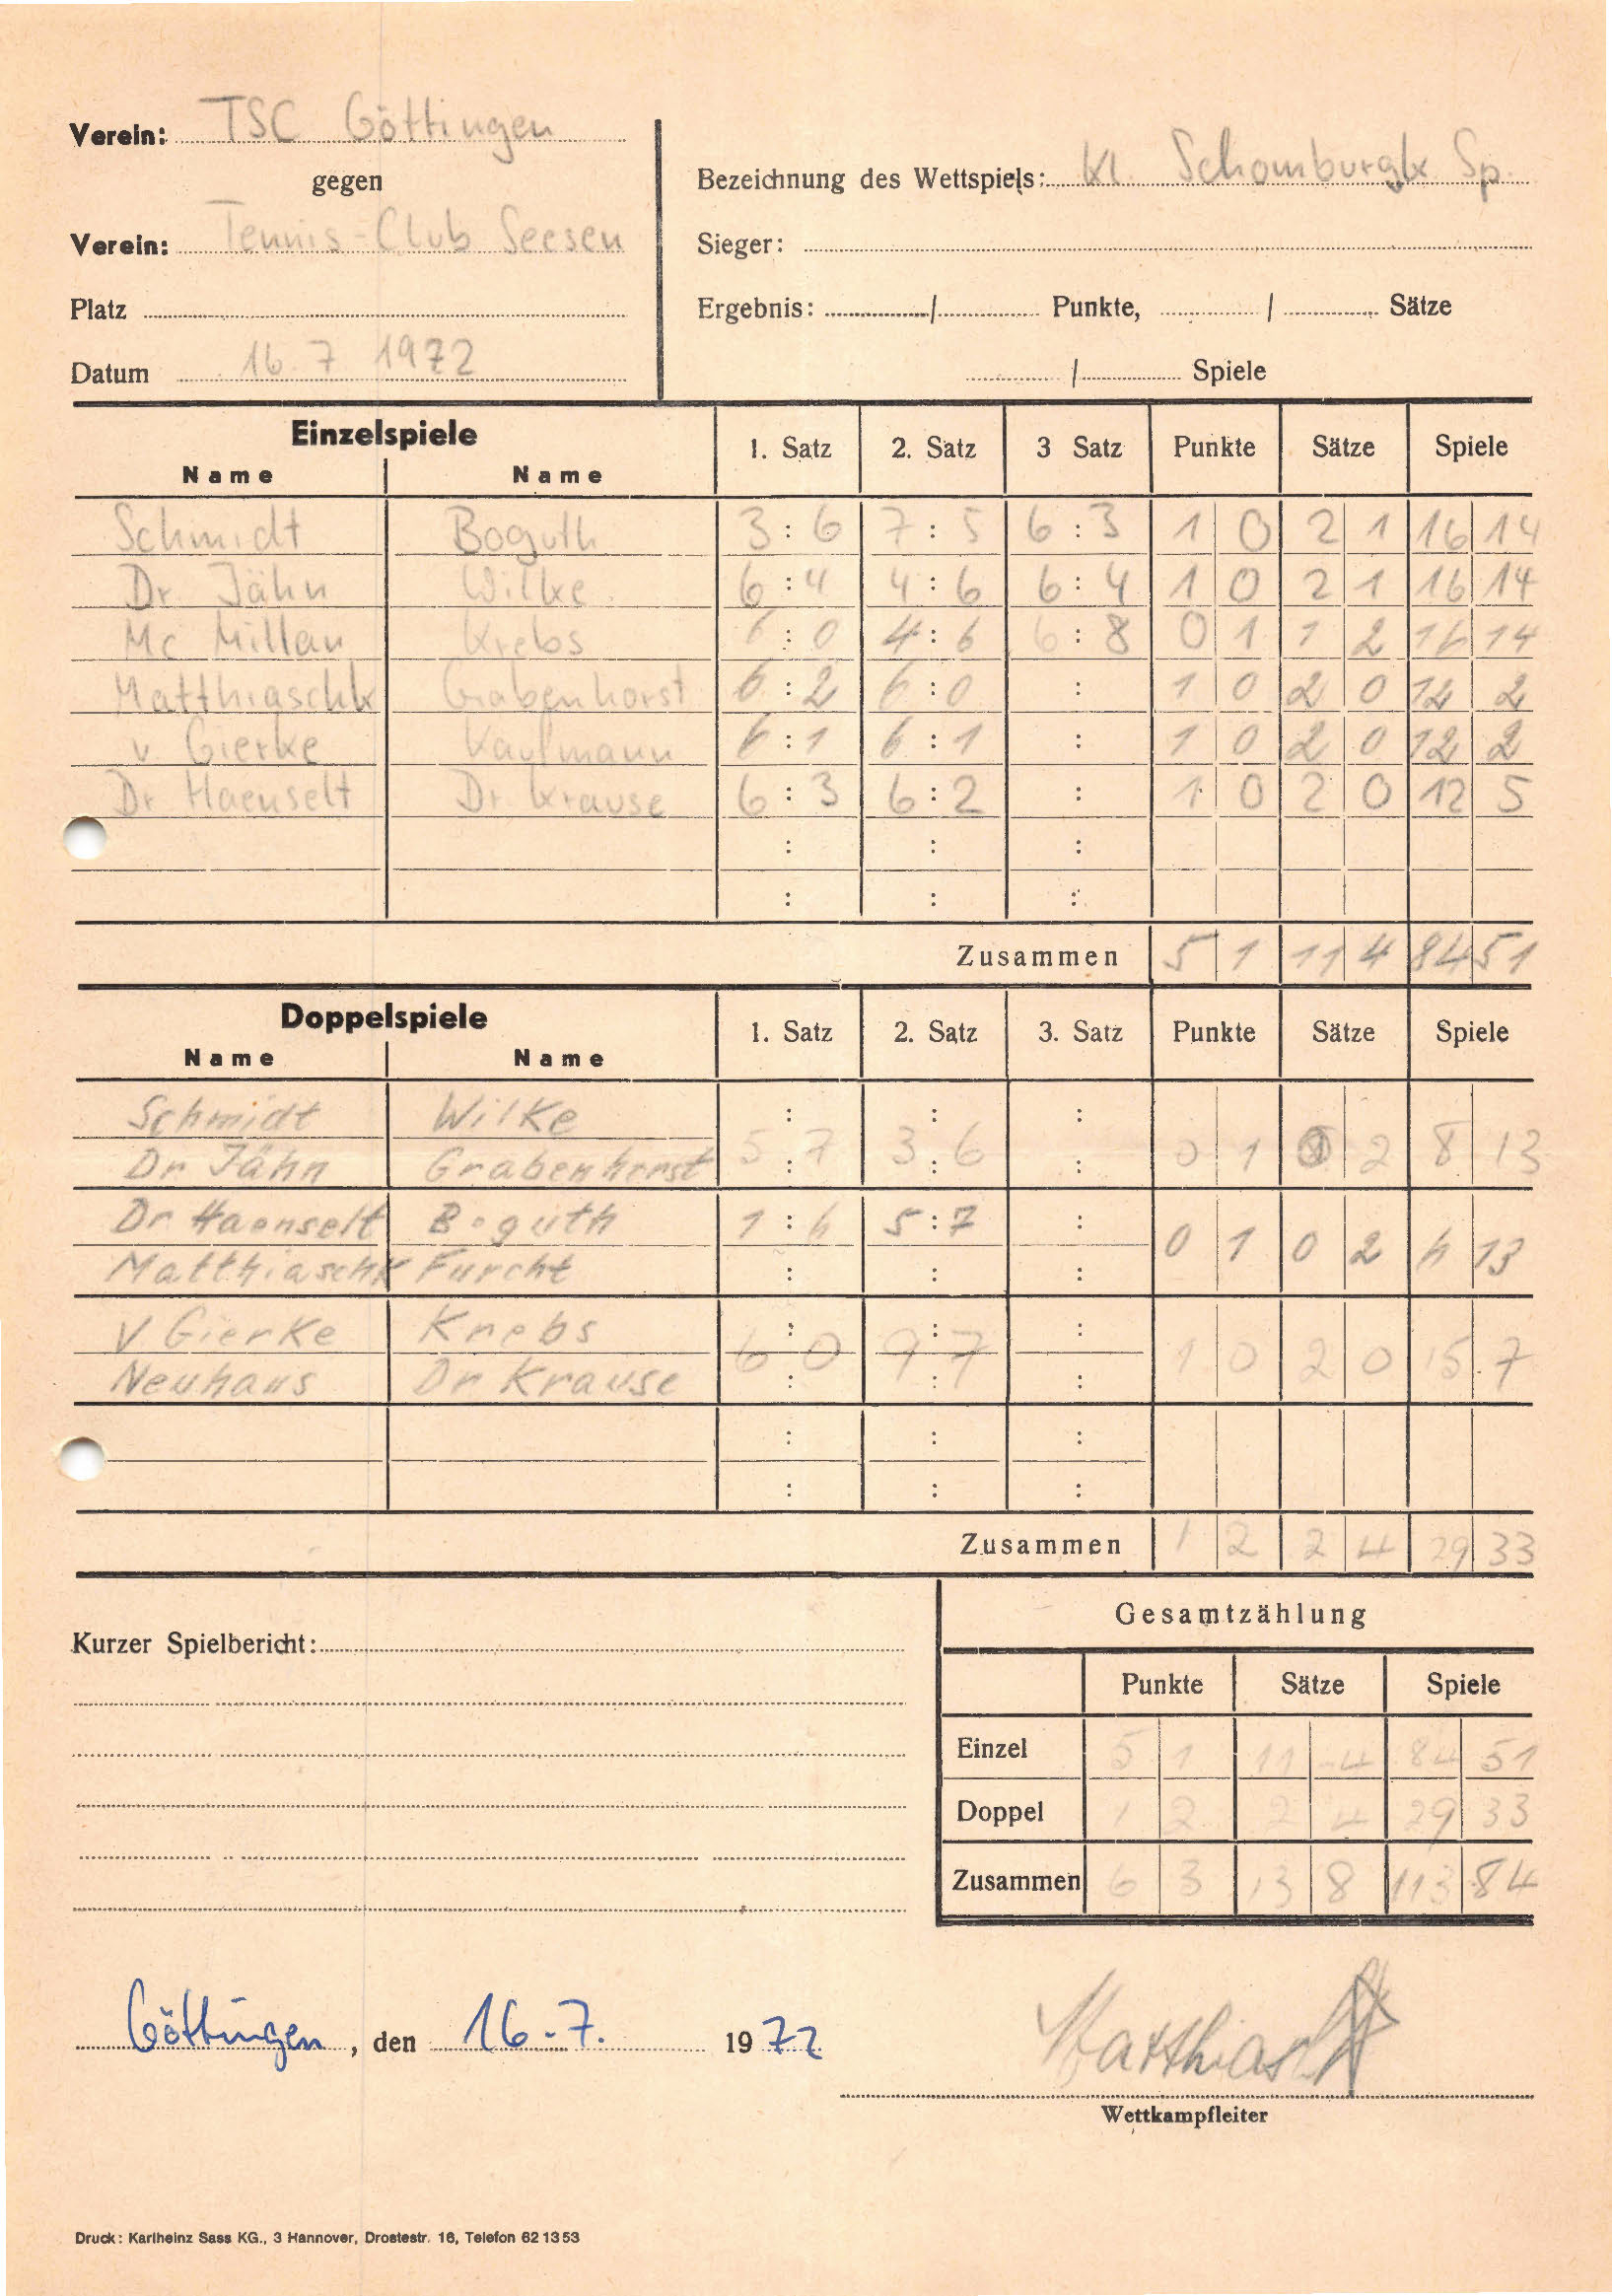 Verein: TSC Göttingen
gegen
Verein: Tennis-Club Seesen
Platz
Datum 16.7 1972
Bezeichnung des Wettspiels: Kl. Schomburgk Sp.
Sieger:
Ergebnis: / Punkte, / Sätze
/ Spiele
Einzelspiele 1. Satz 2. Satz 3 Satz Punkte Sätze Spiele
Name Name
Schmidt Boguth 3:6 7:5 6:3 1 0 2 1 16 14
Dr. Jähn Wilke 6:4 4:6 6:4 1 0 2 1 16 14
Mc Millan Krebs 6:0 4:6 6:8 0 1 1 2 16 14
Matthiaschk Grabenhorst 6:2 6:0 : 1 0 2 0 12 2
v. Gierke Kaufmann 6:1 6:1 : 1 0 2 0 12 2
Dr Haenselt Dr. Krause 6:3 6:2 : 1 0 2 0 12 5
: : :
: : :
Zusammen 5 1 11 4 84 51
Doppelspiele 1. Satz 2. Satz 3. Satz Punkte Sätze Spiele
Name Name
Schmidt Wilke : : :
Dr Jähn Grabenhorst 5:7 3:6 : 0 1 0 2 8 13
Dr Haenselt Boguth 1:6 5:7 : 0 1 0 2 6 13
Matthiaschk Furcht : : :
V Gierke Krebs : : :
Neuhaus Dr Krause 6:0 9:7 : 1 0 2 0 15 7
: : :
: : :
Zusammen 1 2 2 4 29 33
Kurzer Spielbericht:
Gesamtzählung
Punkte Sätze Spiele
Einzel 5 1 11 4 84 51
Doppel 1 2 2 4 29 33
Zusammen 6 3 13 8 113 84
Göttingen, den 16.7. 1972
Matthiaschk
Wettkampfleiter
Druck: Karlheinz Sass KG., 3 Hannover, Drostestr. 16, Telefon 62 13 53